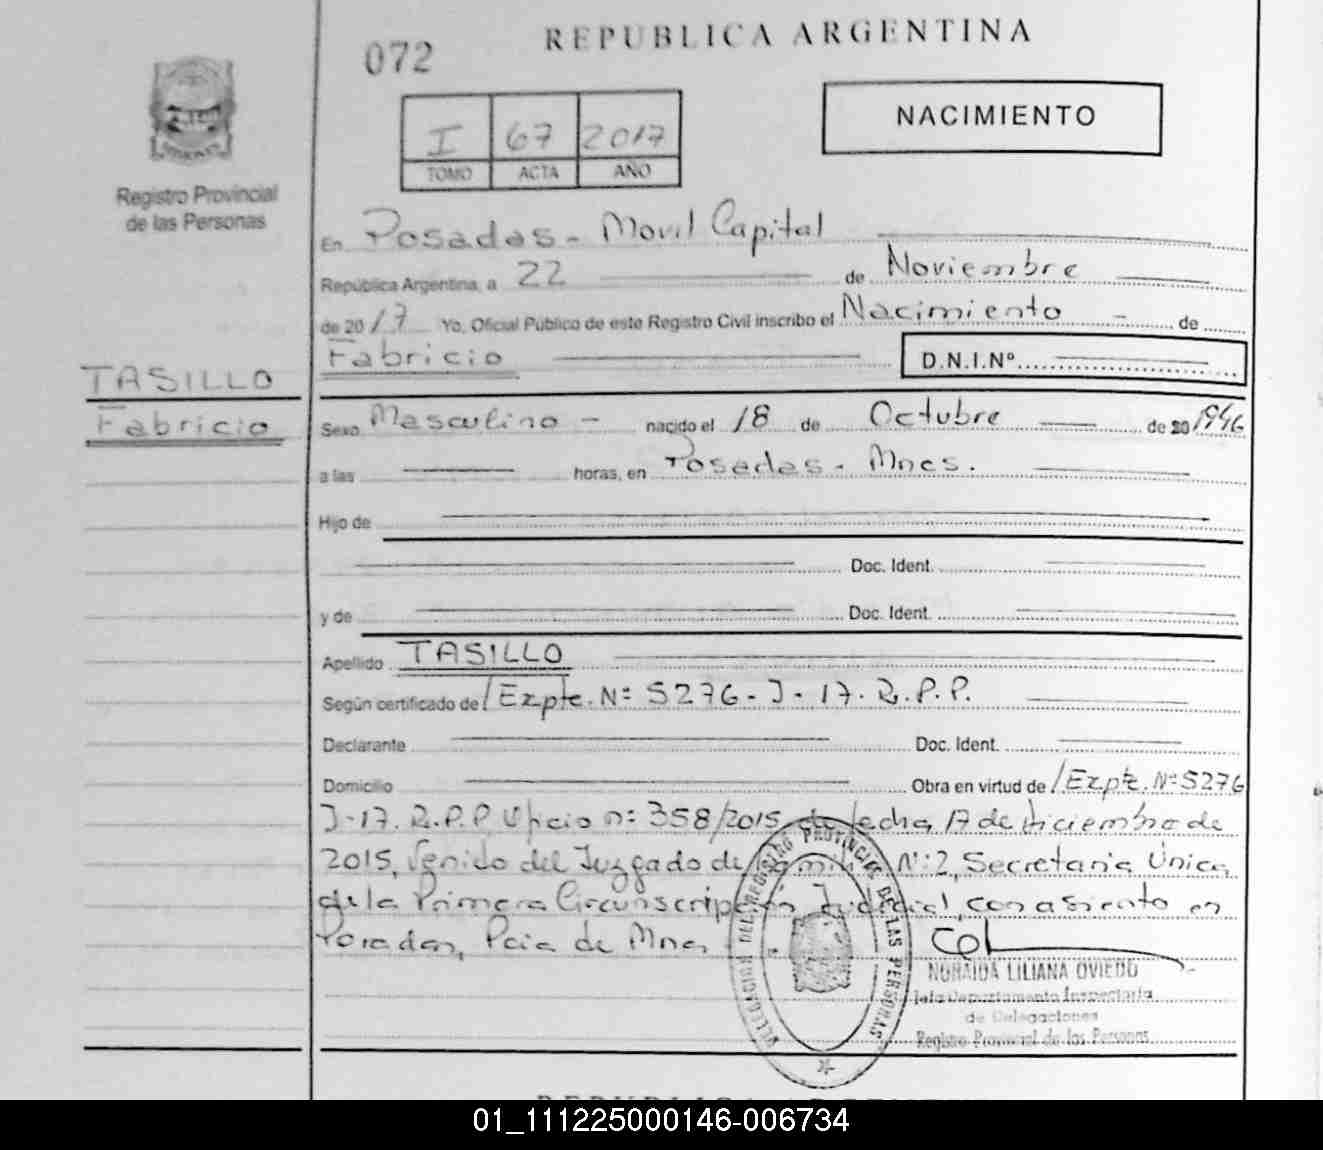 REPUBLICA ARGENTINA
072
I 67 2017
TOMO ACTA AÑO
NACIMIENTO
Registro Provincial
de las Personas
En Posadas - Movil Capital
República Argentina, a 22 de Noviembre
de 2017 Yo, Oficial Público de este Registro Civil inscribo el Nacimiento - de
Fabricio D.N.I.Nº
TASILLO
Fabricio
Sexo Masculino - nacido el 18 de Octubre de 20 1946
a las horas, en Posadas - Mnes.
Hijo de
Doc. Ident.
y de Doc. Ident.
Apellido TASILLO
Según certificado de/ Expte. Nº 5276 - J - 17. R. P. P.
Declarante Doc. Ident.
Domicilio Obra en virtud de /Expte. Nº 5276
J-17. R.P.P. Oficio nº 358/2015, de fecha 17 de Diciembre de
2015, venido del Juzgado de Familia Nº 2, Secretaria Unica
de la Primera Circunscripción Judicial, con asiento en
Posadas, Pcia de Mnes
DELEGACION DEL REGISTRO PROVINCIAL DE LAS PERSONAS
LILIANA OVIEDO
Jefa Departamento Inspectoria
de Delegaciones
Registro Provincial de las Personas
01_111225000146-006734